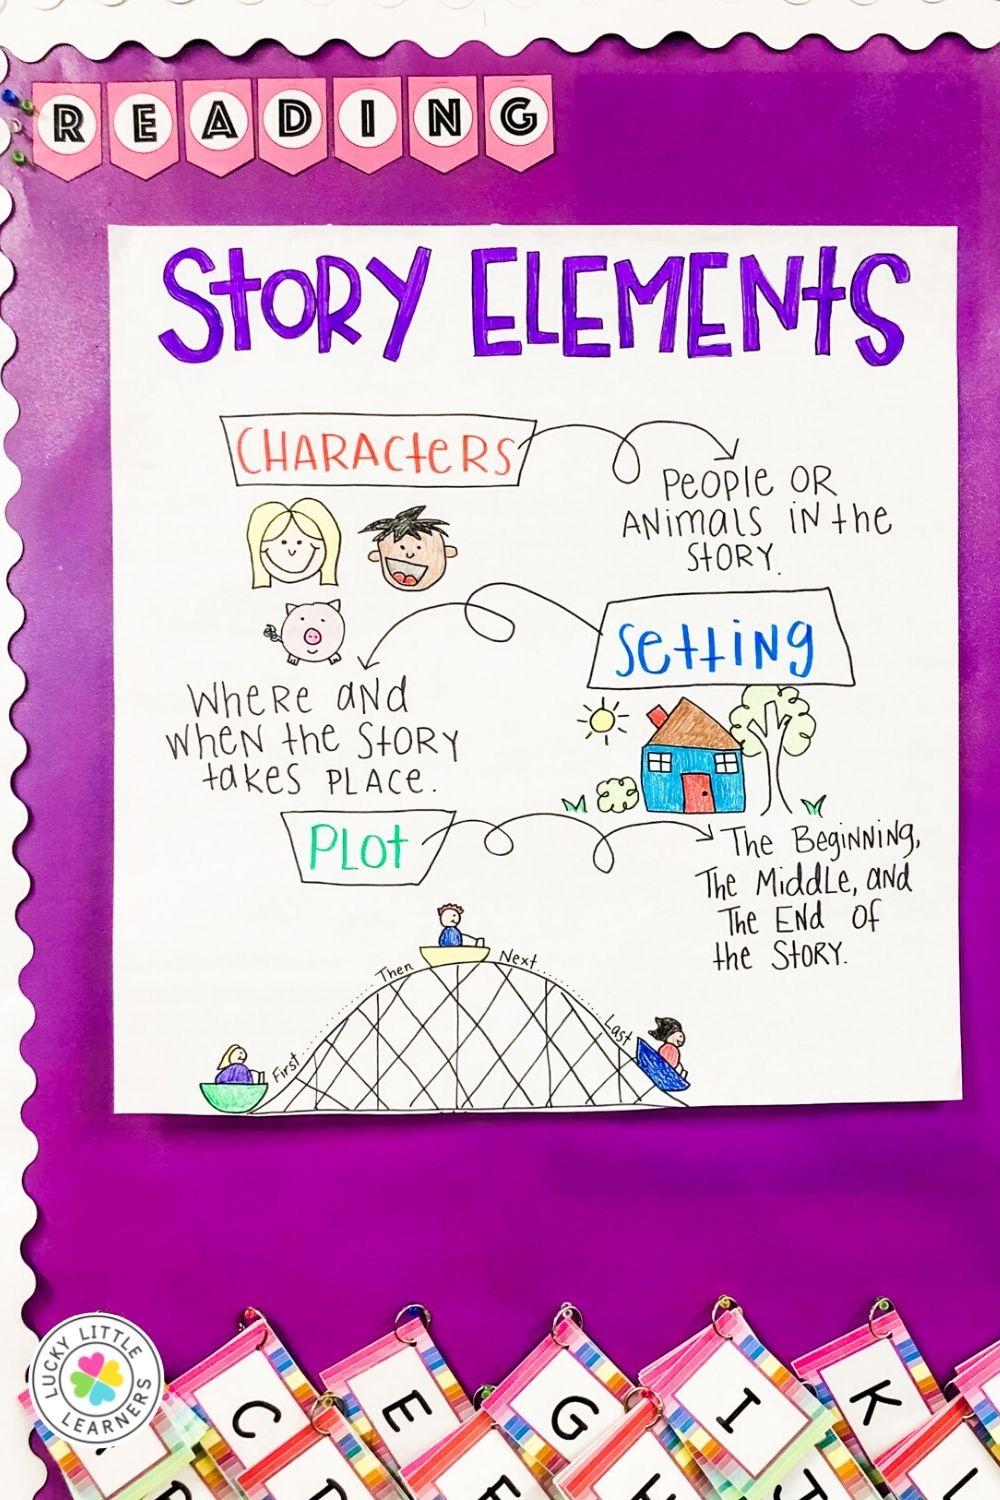 READING
STORY ELEMENTS
CHARACTERS
PEOPLE OR
ANIMALS IN the
STORY.
Setting
WHERE AND
WHEN the STORY
takes PLACE.
PLOt
The Beginning,
The Middle, and
The End Of
the STORY.
First...
Then
Next...
Last
LUCKY LITTLE
LEARNERS
C
E
G
I
K